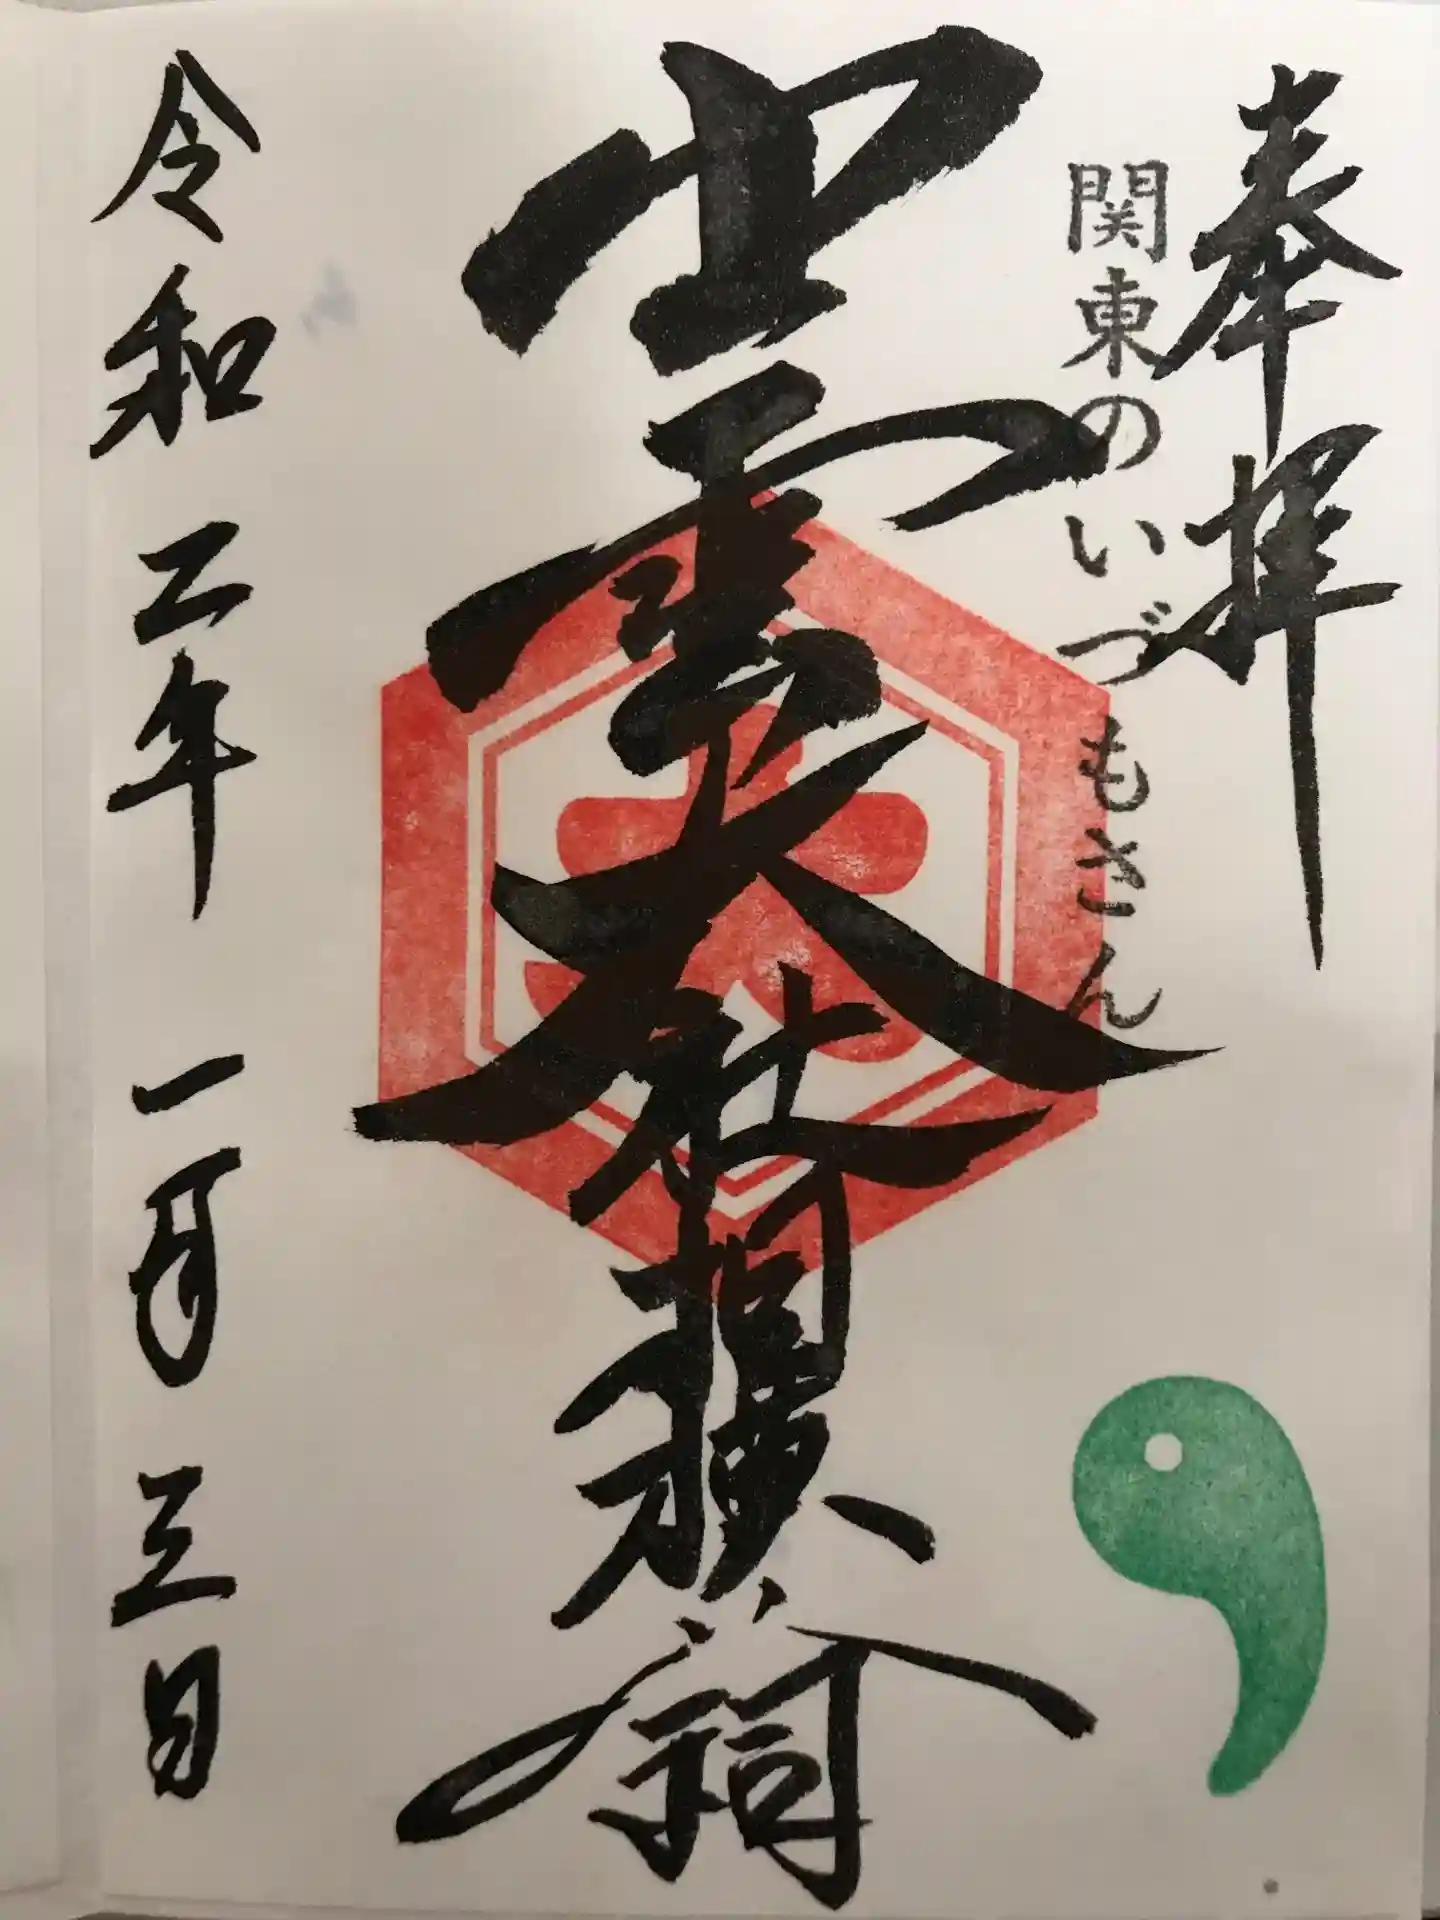 奉拝
関東のいづもさん
出雲大社相模分祠
大
令和二年 一月三日